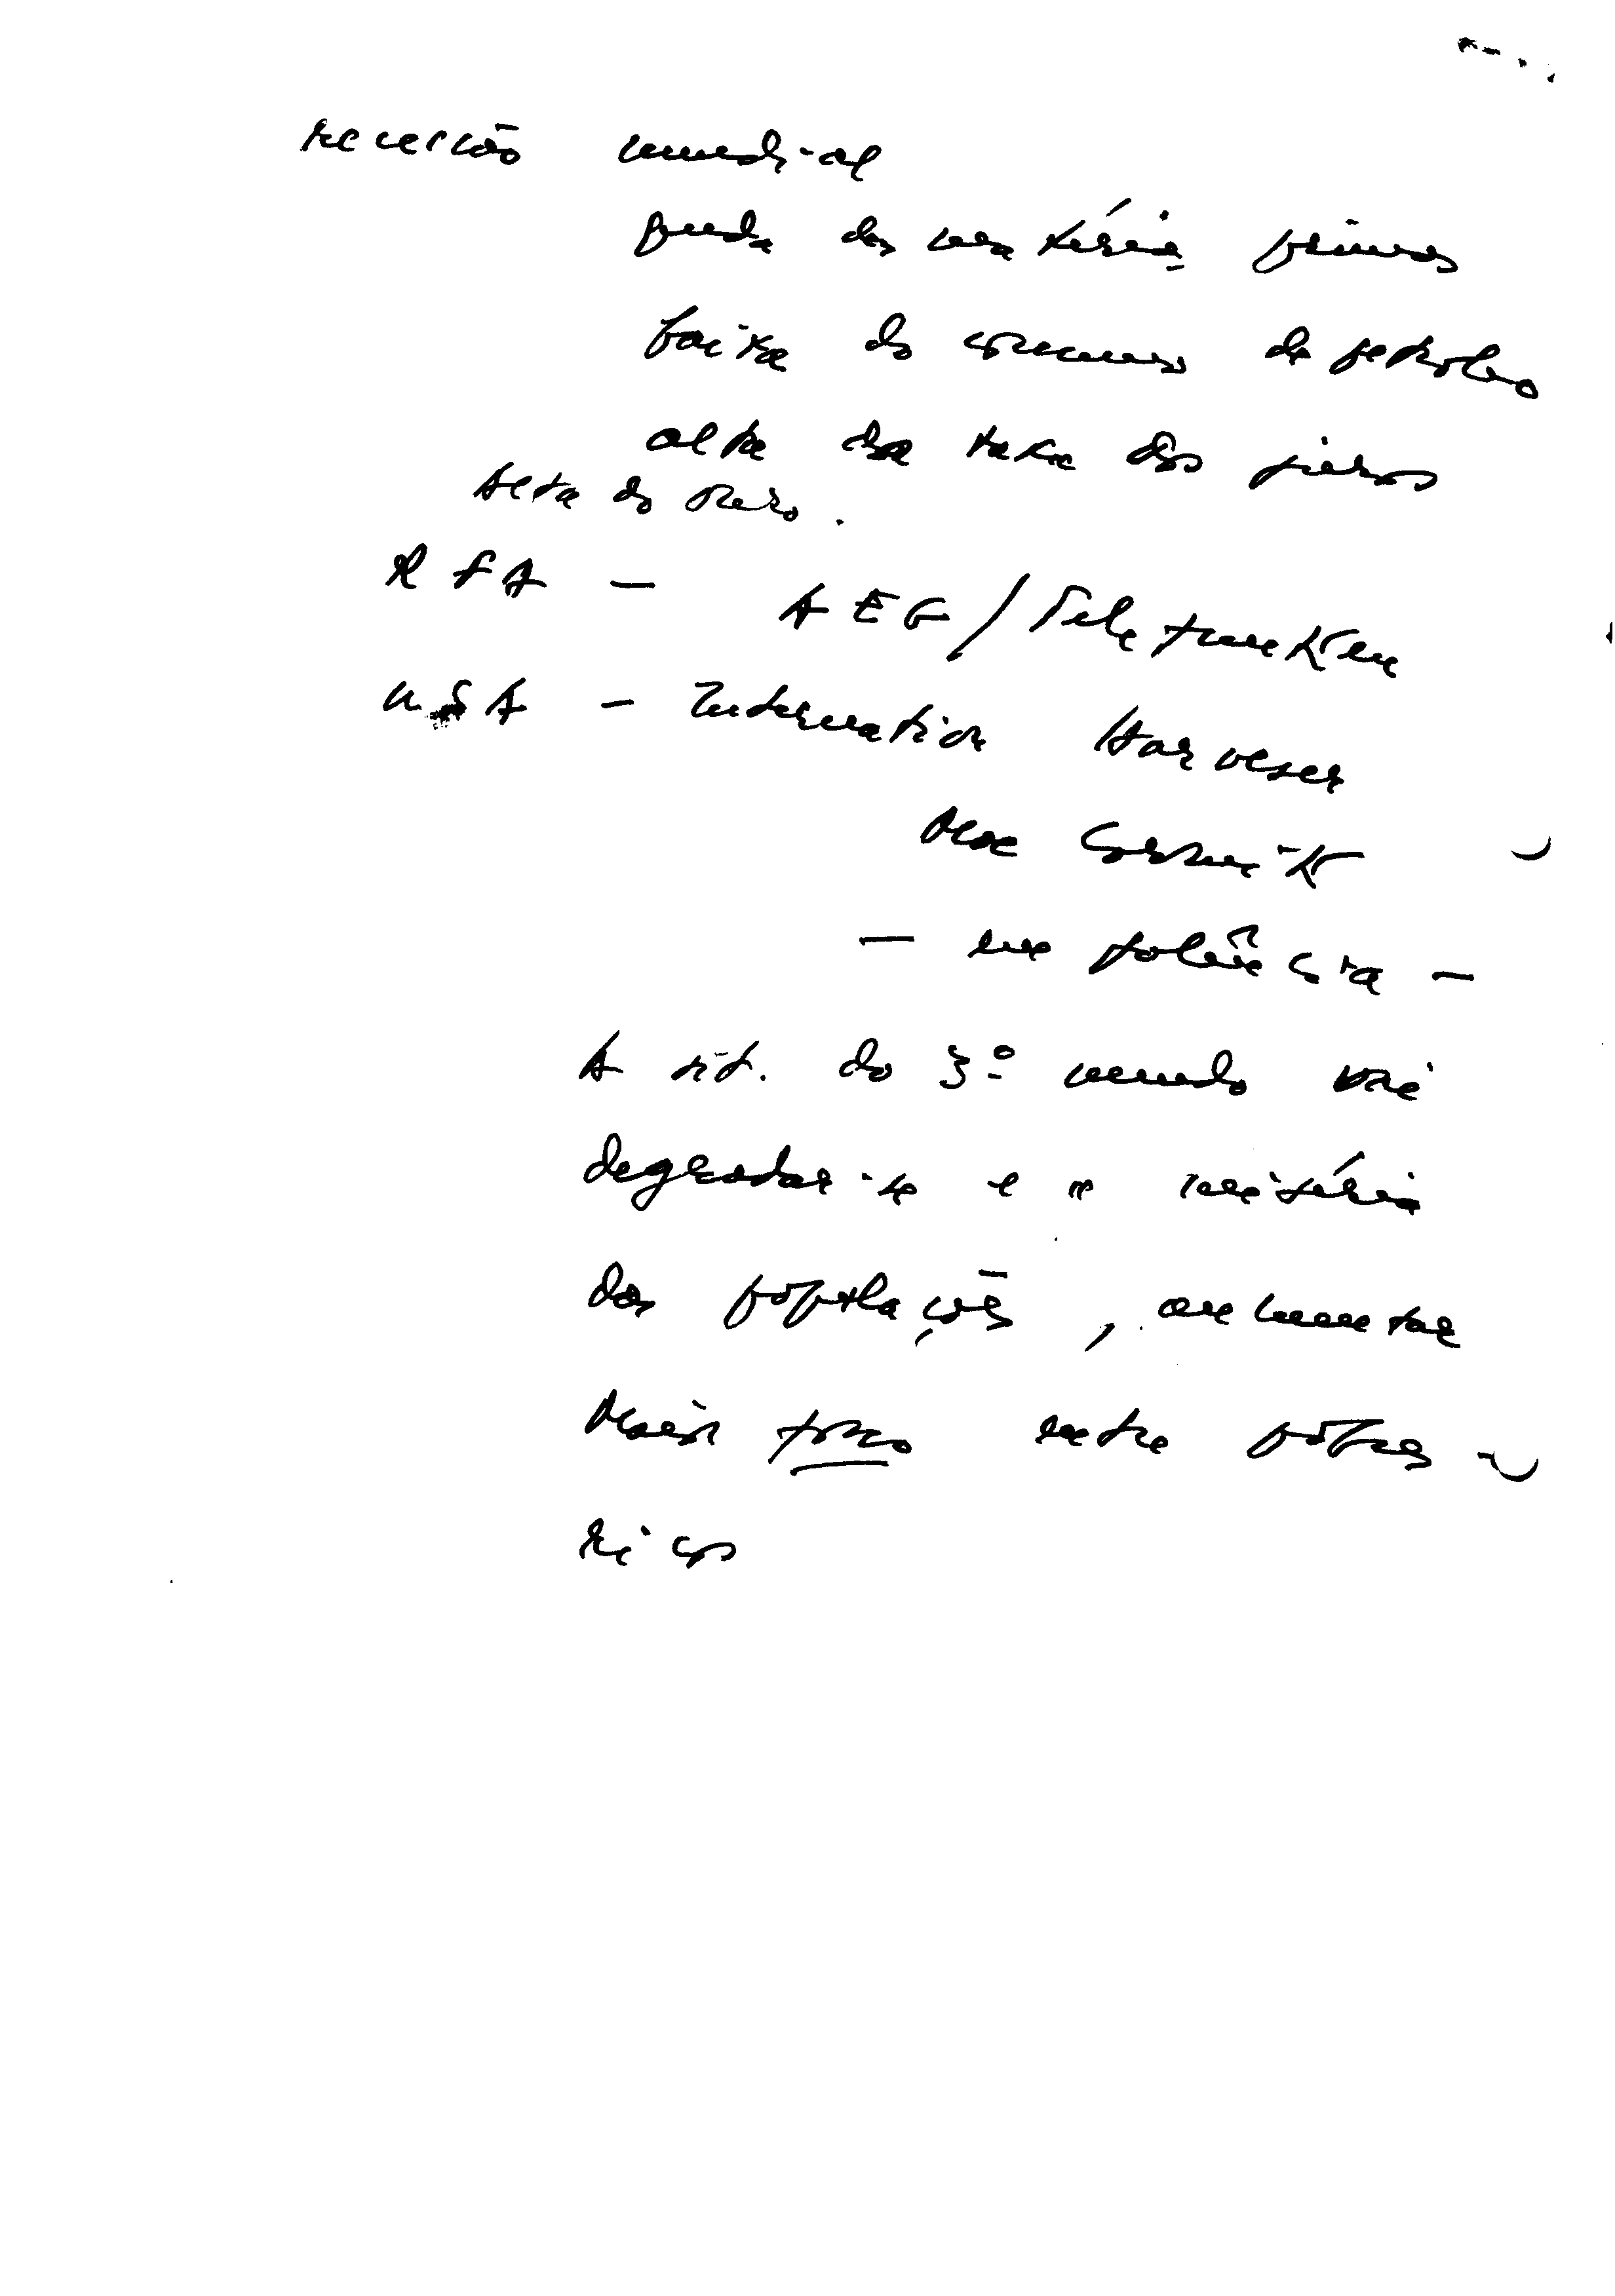 recessão mundial
queda das matérias primas
baixa do consumo de petroleo
alta da taxa dos juros
Alta do ouro.
RFA - AEG/Telefunken
USA - Internation Harvester
Mac Cormik
- em falência -
A sit. do 3º mundo vai
degradar-se e a miséria
das populações, aumentar
Maior fosso entre pobres -
ricos